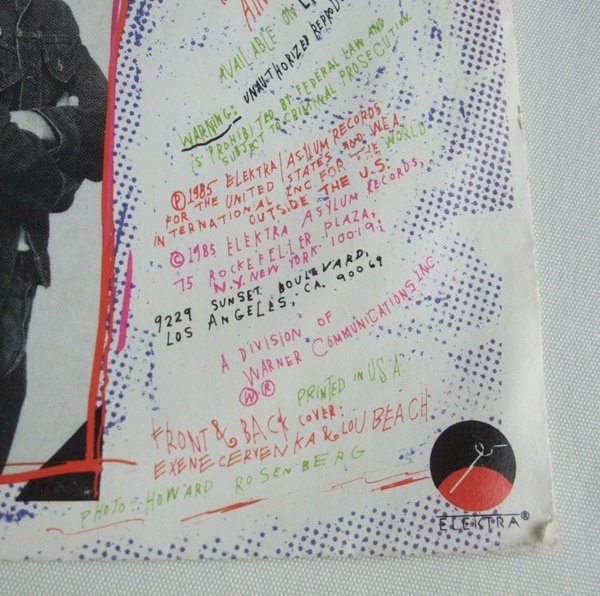 AVAILABLE ON
WARNING: UNAUTHORIZED
IS PROHIBITED BY FEDERAL LAW AND
SUBJECT TO CRIMINAL PROSECUTION.
Ⓟ1985 ELEKTRA/ASYLUM RECORDS
FOR THE UNITED STATES AND WEA
INTERNATIONAL INC FOR THE WORLD
OUTSIDE THE U.S.
©1985 ELEKTRA ASYLUM RECORDS,
75 ROCKEFELLER PLAZA,
N.Y. NEW YORK 10019;
9229 SUNSET BOULEVARD,
LOS ANGELES, CA. 90069
A DIVISION OF
WARNER COMMUNICATIONS INC.
Ⓦ®
PRINTED IN USA.
FRONT & BACK COVER:
EXENE CERVENKA & LOU BEACH
PHOTO: HOWARD ROSENBERG
ELEKTRA®